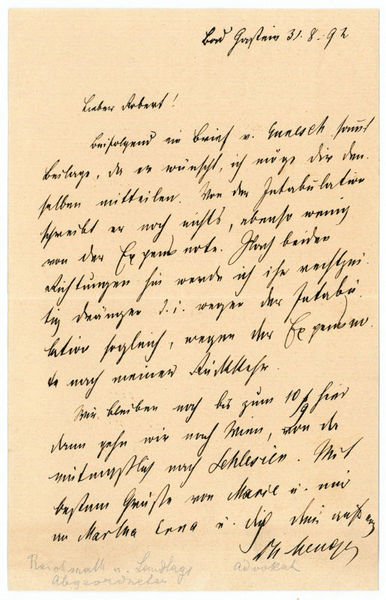 Bad Gastein 31.8.92
Lieber Robert!
Beifolgend ein Brief v. samt
Beilage, da er wünscht, ich möge dir den-
selben mitteilen. Von der Intabulation
schreibt er noch nichts, ebenso wenig
von der Expensnote. Nach beiden
Richtungen hin werde ich ihn rechtzei-
tig drängen d.i. wegen der Intabu-
lation sogleich, wegen der Expensno-
te nach meiner Rückkehr.
Wir bleiben noch bis zum 10/9 hier
dann gehn wir nach Wien, von da
nach Schlesien. Mit
besten Grüße von Marie u. mir
an Martha u. dich dein
Reichsrath u. Landtags Advokat
Abgeordneter